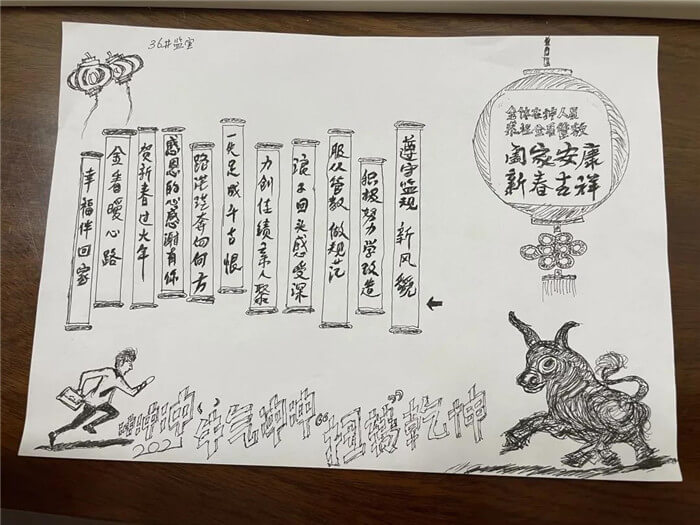 36#监室
全体在押人员
恭祝全所管教
阖家安康
新春吉祥
遵守监规 新风貌
积极努力学改造
服从管教 做规范
浪子回头感受深
力创佳绩亲人聚
一失足成千古恨
路茫茫奔向何方
感恩的心感谢有你
贺新春过大年
金春暖心路
幸福伴回家
2021 牛气冲冲 "扭转"乾坤